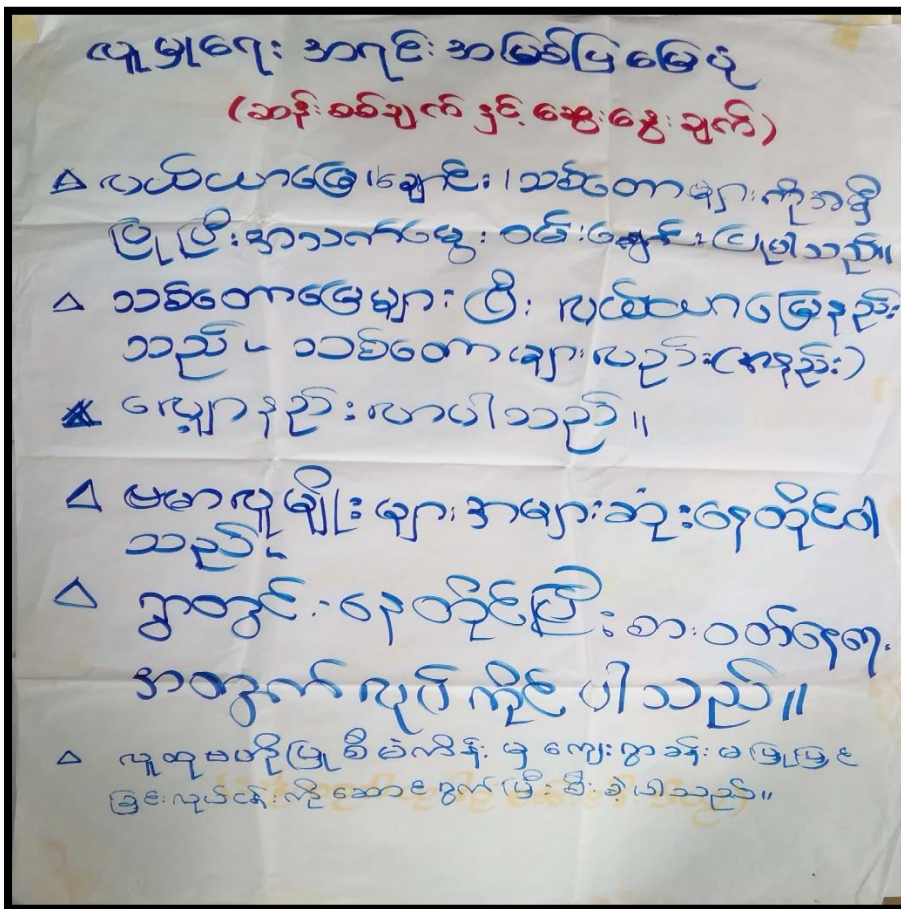 လူမှုရေး အရင်း အမြစ်ပြမြေပုံ
(ဆန်းစစ်ချက် နှင့် ဆွေးနွေးချက်)
△ လယ်ယာမြေ၊ ချောင်း၊ သစ်တောများကိုအမှီ
ပြုပြီးအသက်မွေး ဝမ်းကျောင်းပြုပါသည်။
△ သစ်တောမြေများ ပြီး လယ်ယာမြေနည်း
သည် - သစ်တောများလည်း (အနည်း)
လျော့နည်းလာပါသည်။
△ ဗမာလူမျိုးများအများဆုံးနေထိုင်ပါ
သည် -
△ ရွာတွင်း နေထိုင်ပြီး စားဝတ်နေရေး
အတွက် လုပ်ကိုင်ပါသည်။
△ လူထုဗဟိုပြု စီမံကိန်းမှ ကျေးရွာခန်းမပြုပြင်
ခြင်းလုပ်ငန်းကို ဆောင်ရွက်ပြီးစီးခဲ့ပါသည်။